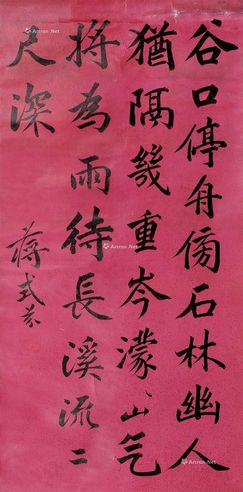 谷口停舟傍石林幽人
猶隔幾重岑濛〻山气
將為雨待長溪流二
尺深
蔣式芬
Artron.Net
Artron.Net
Artron.Net
Artron.Net